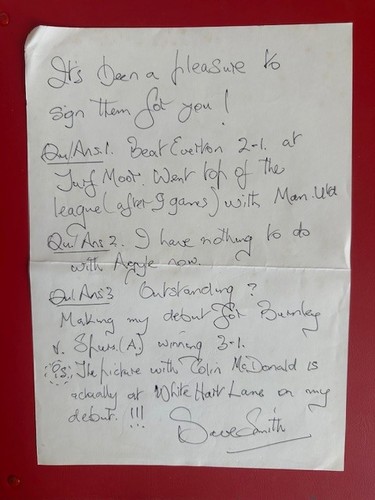 It's been a pleasure to
sign them for you!
Qu/Ans.1. Beat Everton 2-1. at
Turf Moor. Went top of the
league (after 9 games) with Man. Utd
Qu/Ans 2. I have nothing to do
with now.
Qu/Ans 3 Outstanding?
Making my debut for Burnley
v. Spurs. (A.) winning 3-1.
P.S. The picture with Colin McDonald is
actually at White Hart Lane on my
debut. !!!
Dave Smith